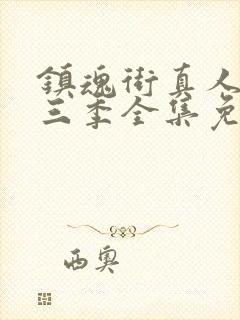 鎮魂街真人
三季全集免
西奥